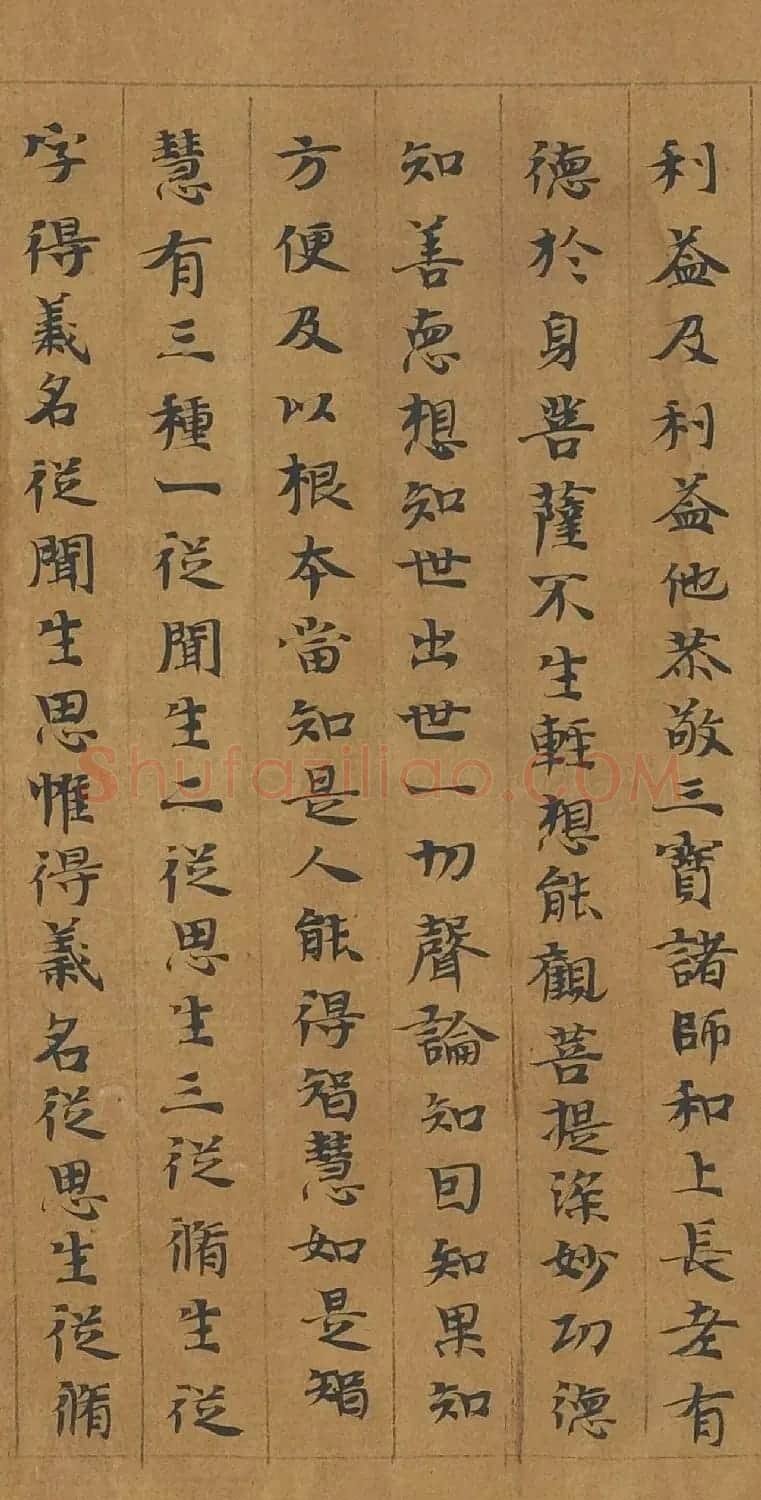 利益及利益他恭敬三寶諸師和上長老有
德於身菩薩不生輕想能觀菩提深妙功德
知善惡想知世出世一切聲論知因知果知
方便及以根本當知是人能得智慧如是智
慧有三種一從聞生二從思生三從脩生從
字得義名從聞生思惟得義名從思生從脩
Shufaziliao.COM